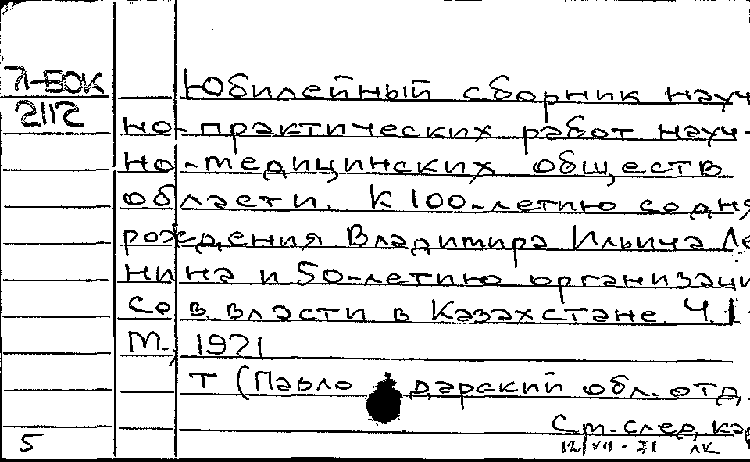 Л-ВОК
2112
Юбилейный сборник науч
но-практических работ науч-
но-медицинских обществ
области. К 100-летию со дня
рождения Владимира Ильича Ле
нина и 50-летию организаци
Сов власти в Казахстане Ч.1
М., 1971
Т (Павлодарский обл. отд.
См. след. кар
5
12/VII-71 ЛК